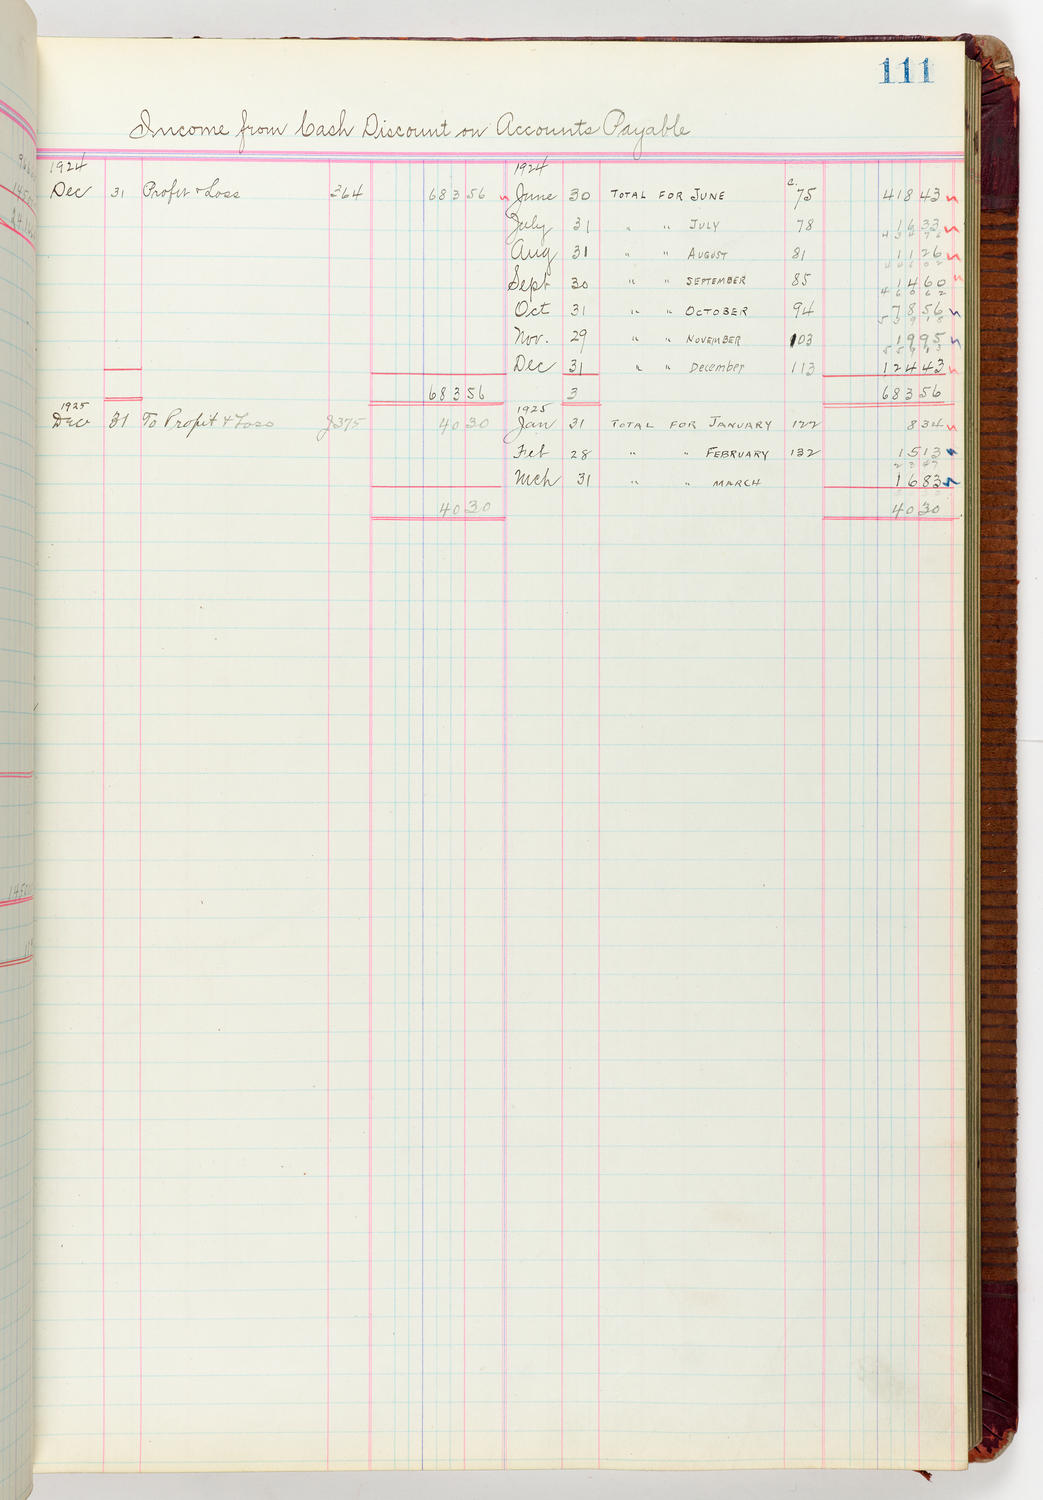 111
Income from Cash Discount on Accounts Payable
1924 1924
Dec 31 Profit & Loss 264 683 56 June 30 TOTAL FOR JUNE C. 75 418 43
July 31 " " JULY 78 16 33
434 76
Aug 31 " " AUGUST 81 11 26
446 02
Sept 30 " " SEPTEMBER 85 14 60
460 62
Oct 31 " " OCTOBER 94 78 56
539 18
Nov. 29 " " NOVEMBER 103 19 95
559 13
Dec 31 " " December 113 124 43
683 56 3 683 56
1925 1925
Dec 31 To Profit & Loss J375 40 30 Jan 31 TOTAL FOR JANUARY 122 8 34
Feb 28 " " FEBRUARY 132 15 13
23 47
Mch 31 " " MARCH 16 83
40 30 40 30